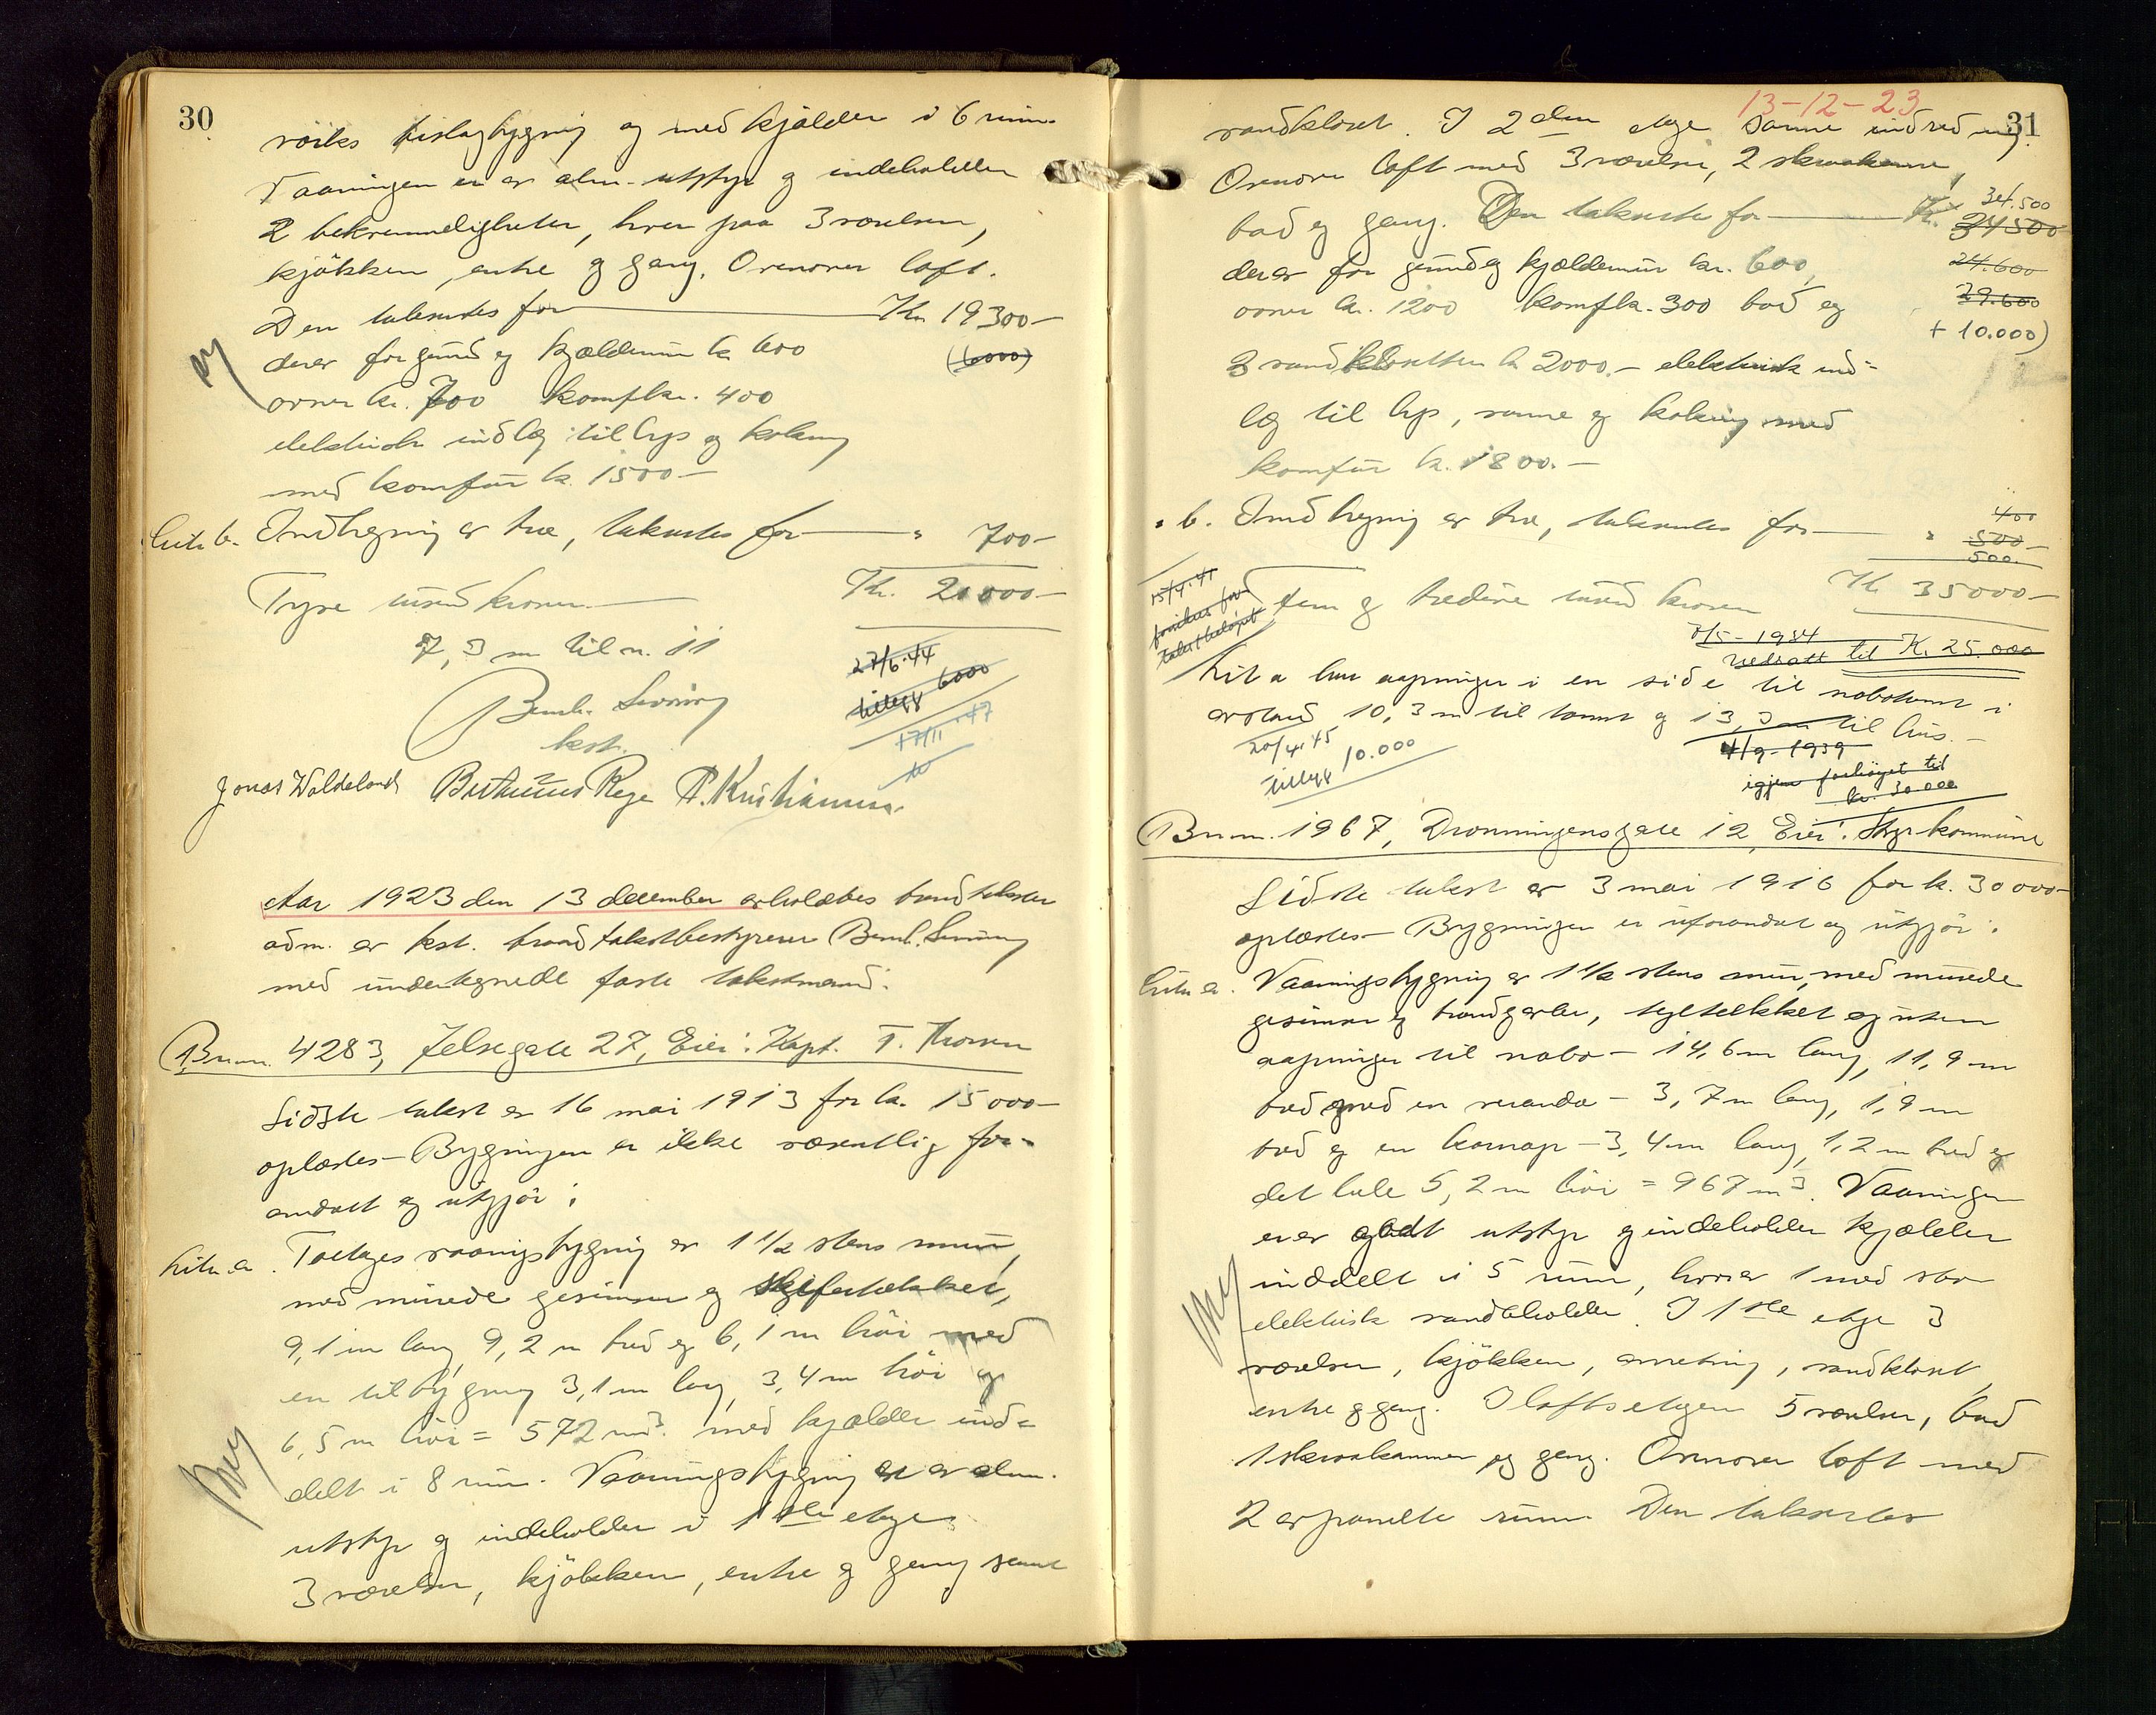 30
røiks bislagbygning og med kjælder i 6 rum.
Vaaningen er av alm. utstyr og indeholder
2 bekvemmeligheter, hver paa 3 værelser,
kjøkken, entre og gang. Ovenover loft.
Den takseres for Kr. 19300-
derav for grund og kjældermur kr. 600
(6000)
ovner kr. 700 komf kr. 400
elektrisk indlæg til lys og kokning
med komfur kr. 1500-
Litr. b. Indhegning av træ, takseres for " 700-
Tyve tusend kroner. Kr. 20000-
7,3 m til n. 11
27/6-44
tillegg 6000
17/11-47
Bernh. Serning
kst.
Jonas Waldeland P. Kristiansen.
Aar 1923 den 13 december avholdtes brandtakster
adm. av kst. brandtakstbestyrerer Bernh. Serning
med undertegnede faste takstmænd:
Br.nr. 4283, Jelsegate 27, Eier: Kapt. T. Thorsen
Sidste takst av 16 mai 1913 for kr. 15000-
oplæstes- Bygningen er ikke væsentlig for-
andret og utgjør:
Litr. a. Toetages vaaningsbygning av 1 1/2 stens mur,
med murede gesimser og skifertækket,
9,1 m lang, 9,2 m bred og 6,1 m høi med
en tilbygning 3,1 m lang, 3,4 m høi og
6,5 m høi = 572 m3. med kjælder ind-
delt i 8 rum. Vaaningsbygning er av alm.
utstyr og indeholder i 1ste etage
3 værelser, kjøkken, entre og gang samt
13-12-23
31
vandkloset. I 2den etage samme indredning.
Ovenover loft med 3 værelser, 2 skraakamre,
bad og gang. Den takseres for Kr. 34500
34.500
derav for grund og kjældermur kr. 600,
24.600
ovner kr. 1200 komf kr. 300 bad og
29.600
+ 10.000)
3 vandklosetter kr 2000.- elektrisk ind-
læg til lys, varme og kokning med
komfur kr. 1800.-
" b. Indhegning av træ, takseres for " 500-
400
500.
15/4.41
forsikres for
takstbeløpet
fem og tredive tusend kroner Kr. 35000-
7/5-1934
nedsatt til Kr. 25.000
Lit a har aapninger i en side til nabotomt i
avstand 10,3 m til tomt og 13,3 m til hus.-
20/4.45
tillegg 10.000
4/9-1939
igjen forhøyet til
kr. 30.000
Br.nr. 1967, Dronningensgate 12, Eier: Stvgr kommune
Sidste takst av 3 mai 1916 for kr. 30000-
oplæstes- Bygningen er uforandret og utgjør:
Litr. a. Vaaningsbygning av 1 1/2 stens mur, med murede
gesimser og brandgavler, tegltækket og uten
aapninger til nabo- 14,6 m lang, 11,9 m
bred med en veranda - 3,7 m lang, 1,9 m
bred og en karnap - 3,4 m lang, 1,2 m bred og
det hele 5,2 m høi = 967 m3. Vaaningen
er av godt utstyr og indeholder kjælder
inddelt i 5 rum, hvorav 1 med stor
elektrisk vandbeholder. I 1ste etage 3
værelser, kjøkken, anretning, vandkloset,
entre og gang. I loftsetagen 5 værelser, bad
1 skraakammer og gang. Ovenover loft med
2 avpanelte rum Den takseres